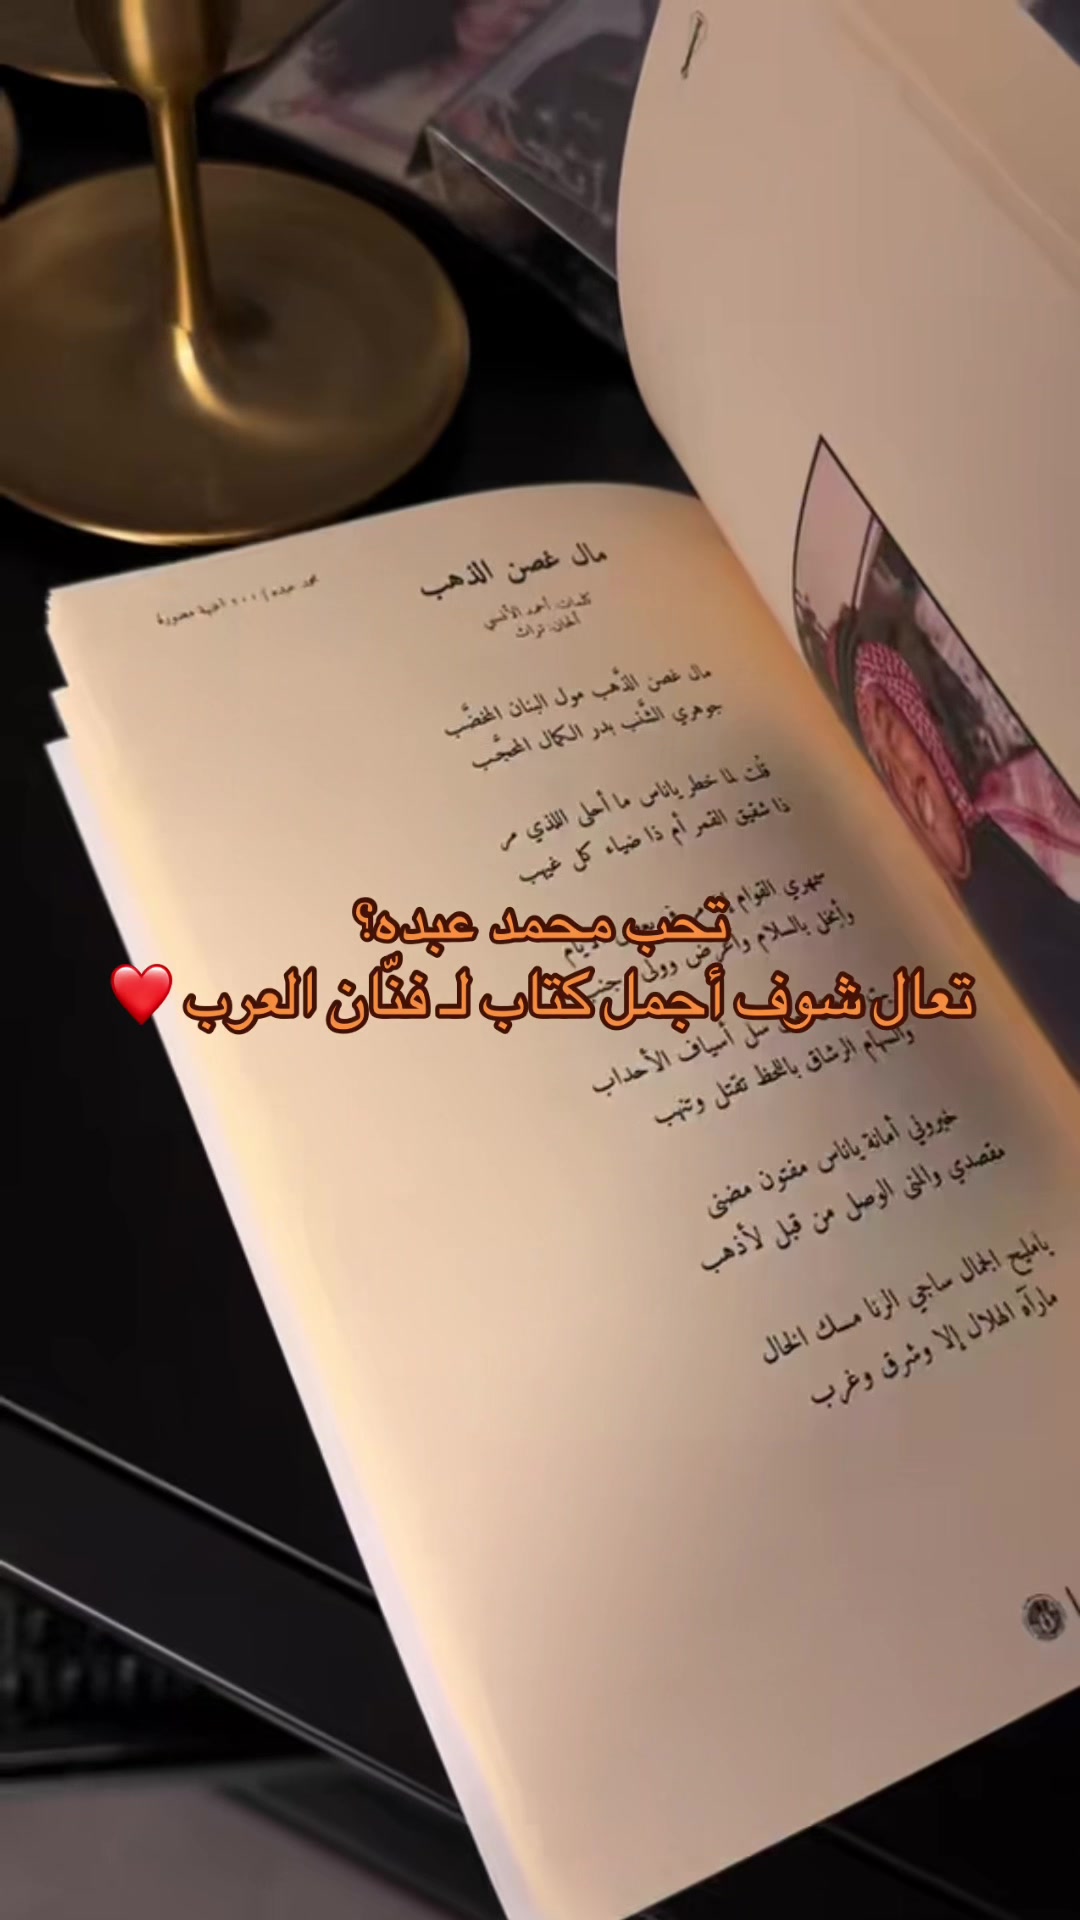 محمد عبده | ٢٠٠ أغنية مصورة
مال غصن الذهب
كلمات: أحمد الآنسي
ألحان: تراث
مال غصن الذَّهب مول البنان المخضَّب
جوهري الشَّنب بدر الكمال المحجَّب
قلت لما خطر ياناس ما أحلى اللذي مر
ذا شقيق القمر أم ذا ضياء كل غيهب
سمهري القوام
وأبخل بالسلام وأعرض وولى
سل أسياف الأحداب
والسهام الرشاق باللحظ تقتل وتنهب
خبروني أمانة ياناس مفتون مضنى
مقصدي والمنى الوصل من قبل لأذهب
يامليح الجمال ساجي الرنا مسك الخال
مارآه الهلال إلا وشرق وغرب
تحب محمد عبده؟
تعال شوف أجمل كتاب لـ فنّان العرب ❤️